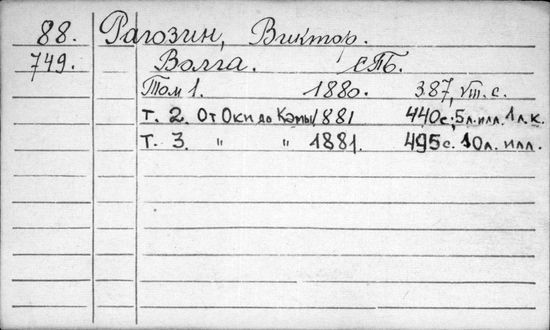 88. Рагозин, Виктор.
749. Волга. СПБ.
Том 1. 1880. 387, VIII. с.
т. 2. От Оки до Камы 1881 440 с; 5 л. илл. 1 л. к.
т. 3. " " 1881. 495 с. 10 л. илл.